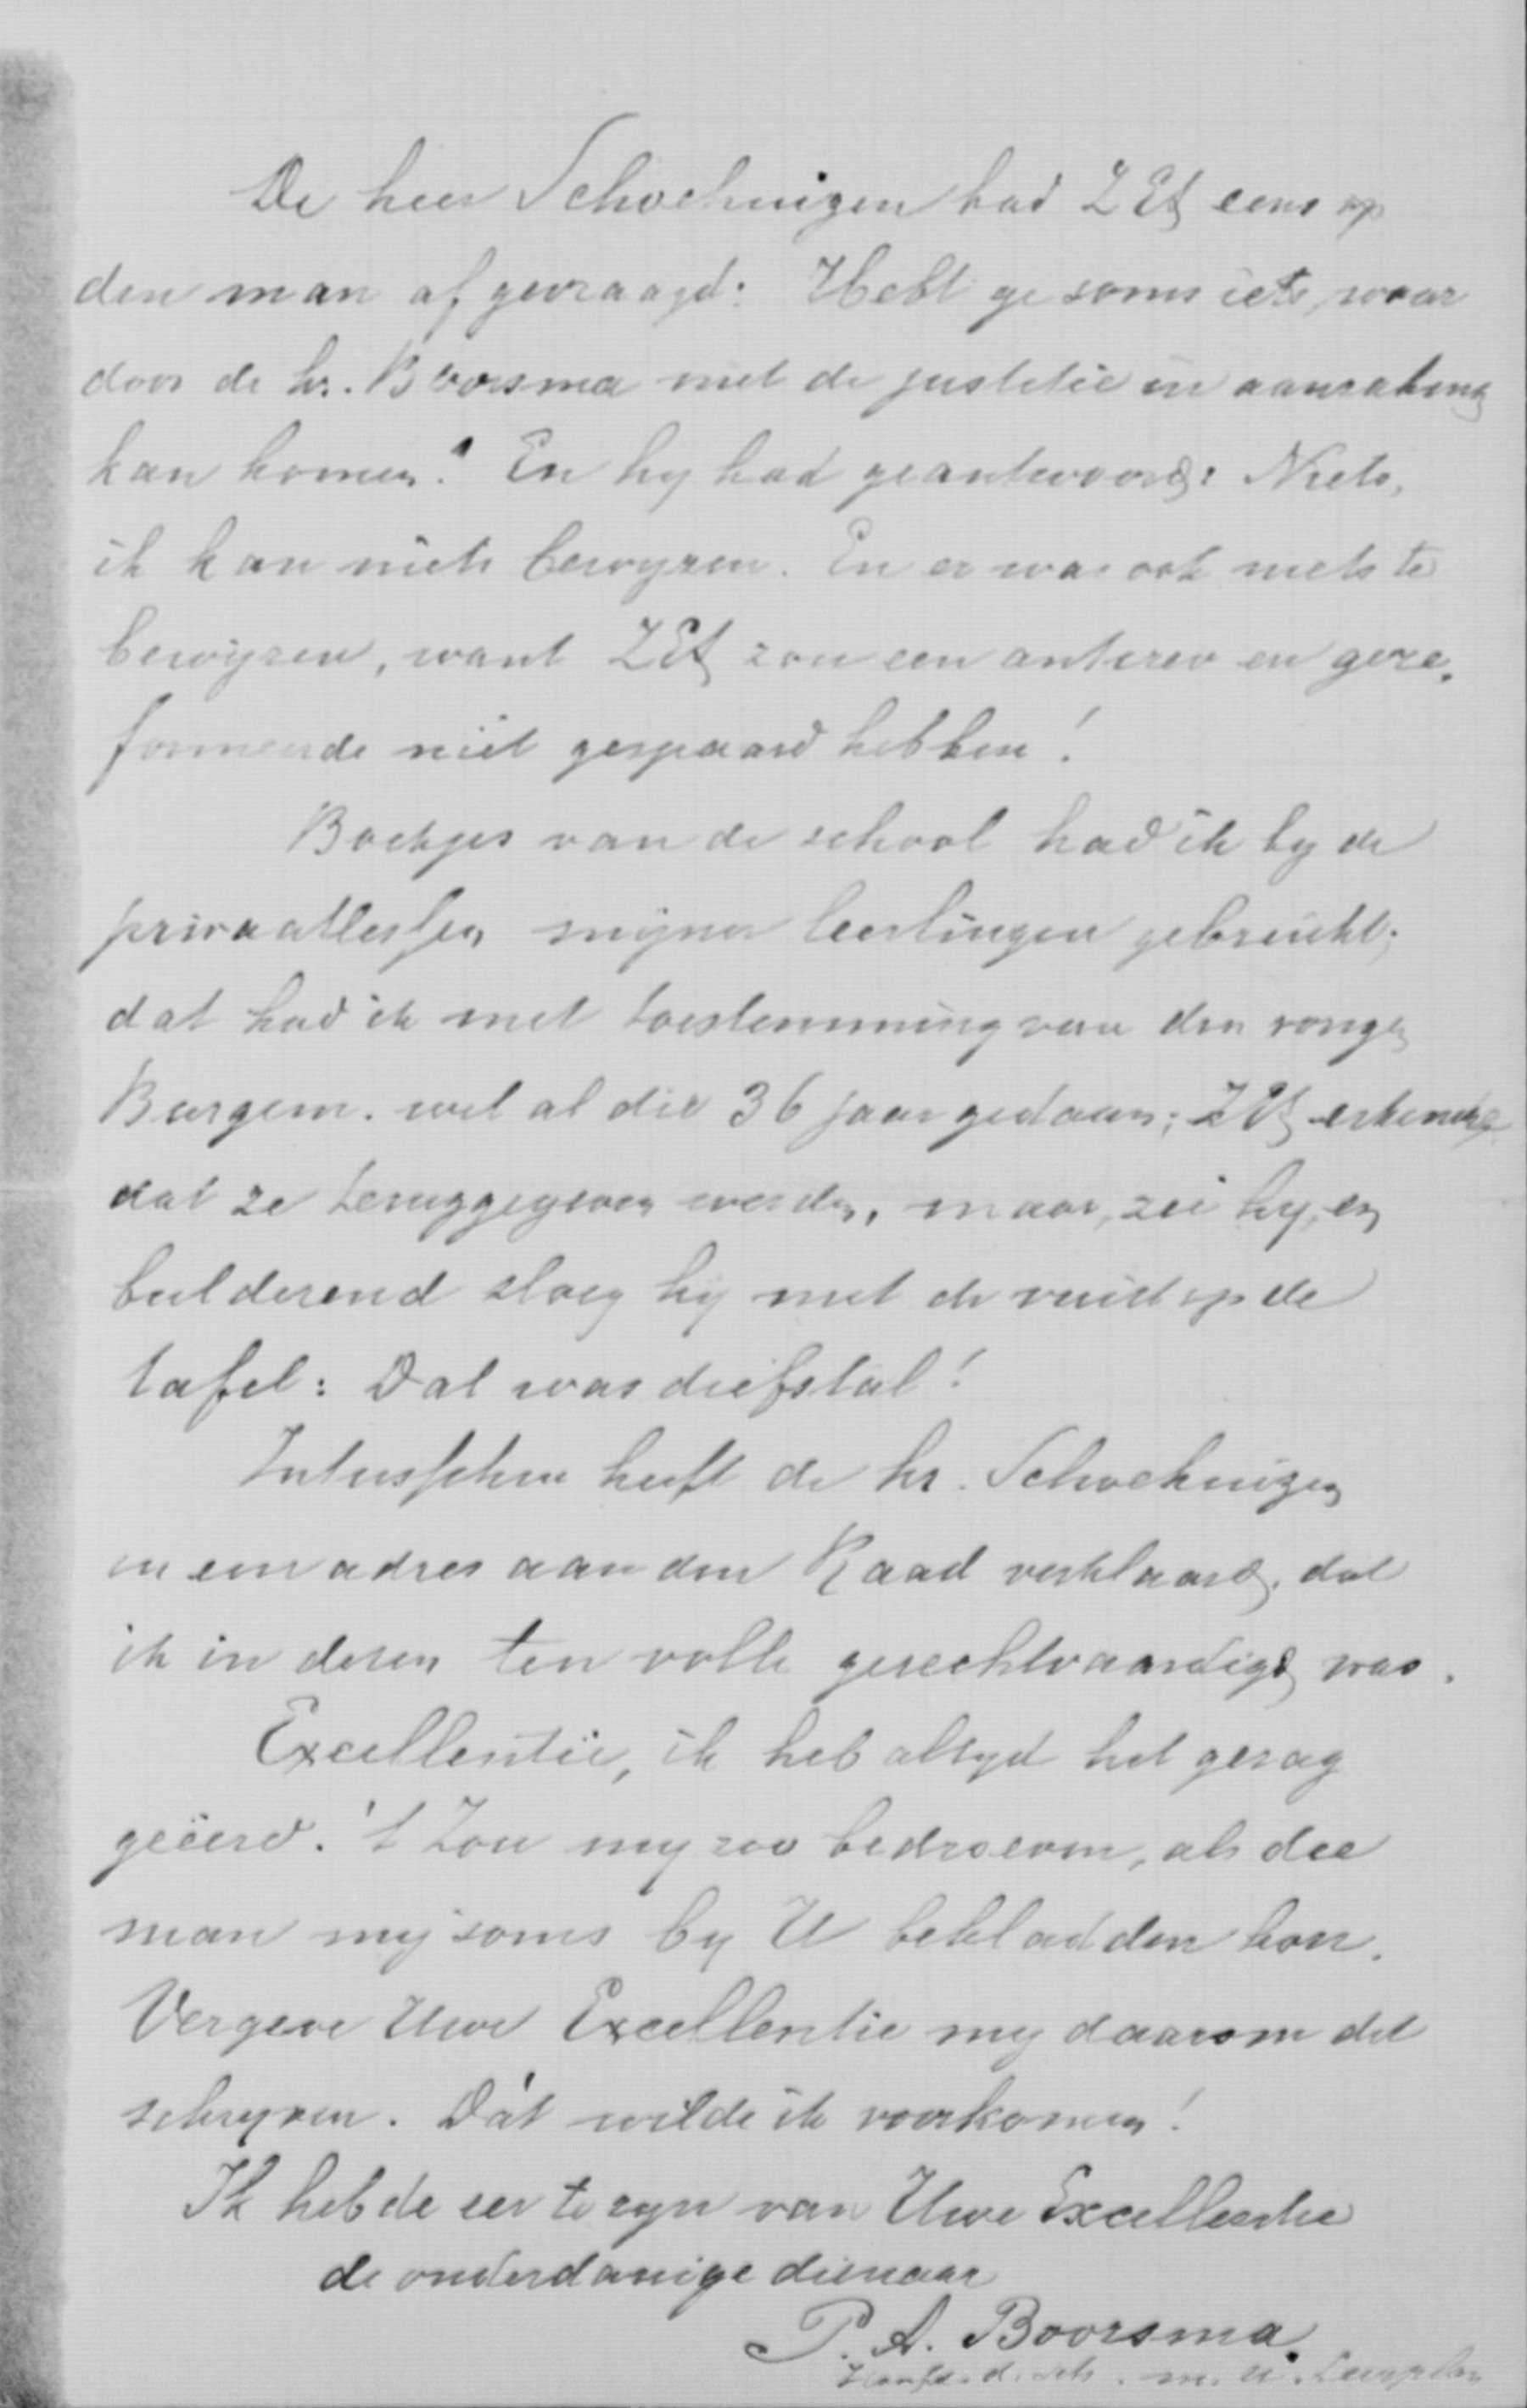 De heer Schochuizen had ZEA eens op
den man af gevraagd: Hebt ge soms iets, waar
door de hr. Boorsma met de justitie in aanraking
kan komen? En hy had geantwoord: Niets,
ik kan niets bewyzen. En er was ook niets te
bewijzen, want ZEA zou een antirev en gere-
formeerde niet gespaard hebben!
Boekjes van de school had ik by de
privaatlessen mijner leerlingen gebruikt;
dat had ik met toestemming van den vorigen
Burgem. wel al die 36 jaar gedaan; ZEA erkende
dat ze teruggegeven werden, maar, zei hy, en
bulderend sloeg hij met de vuist op de
tafel: Dat was diefstal!
Intusschen heeft de hr. Schochuizen
in een adres aan den Raad verklaard, dat
ik in dezen ten volle gerechtvaardigd was.
Excellentie, ik heb altyd het gezag
geëerd. 't Zou my zoo bedroeven, als die
man mij soms by U bekladden kon.
Vergeve Uwe Excellentie my daarom dit
schryven. Dát wilde ik voorkomen!
Ik heb de eer te zyn van Uwe Excellentie
de onderdanige dienaar
P. A. Boorsma
Hoofd. d. sch.